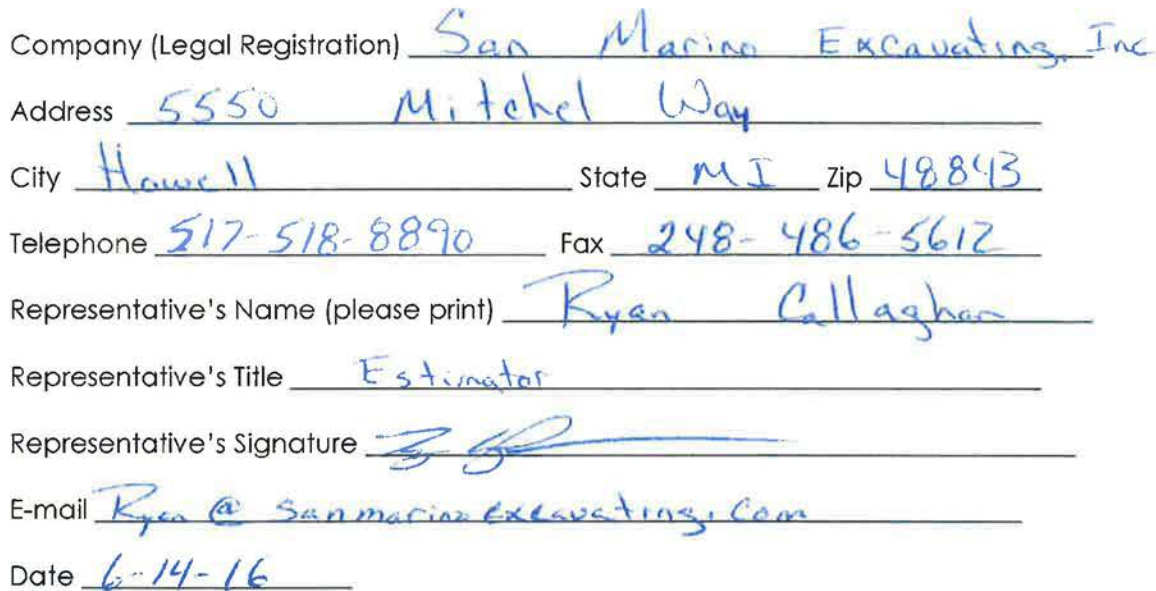 Company (Legal Registration) San Marino Excavating, Inc
Address 5550 Mitchel Way
City Howell State MI Zip 48843
Telephone 517-518-8890 Fax 248-486-5612
Representative's Name (please print) Ryan Callaghan
Representative's Title Estimator
Representative's Signature
E-mail Ryan@sanmarinoexcavating.com
Date 6-14-16